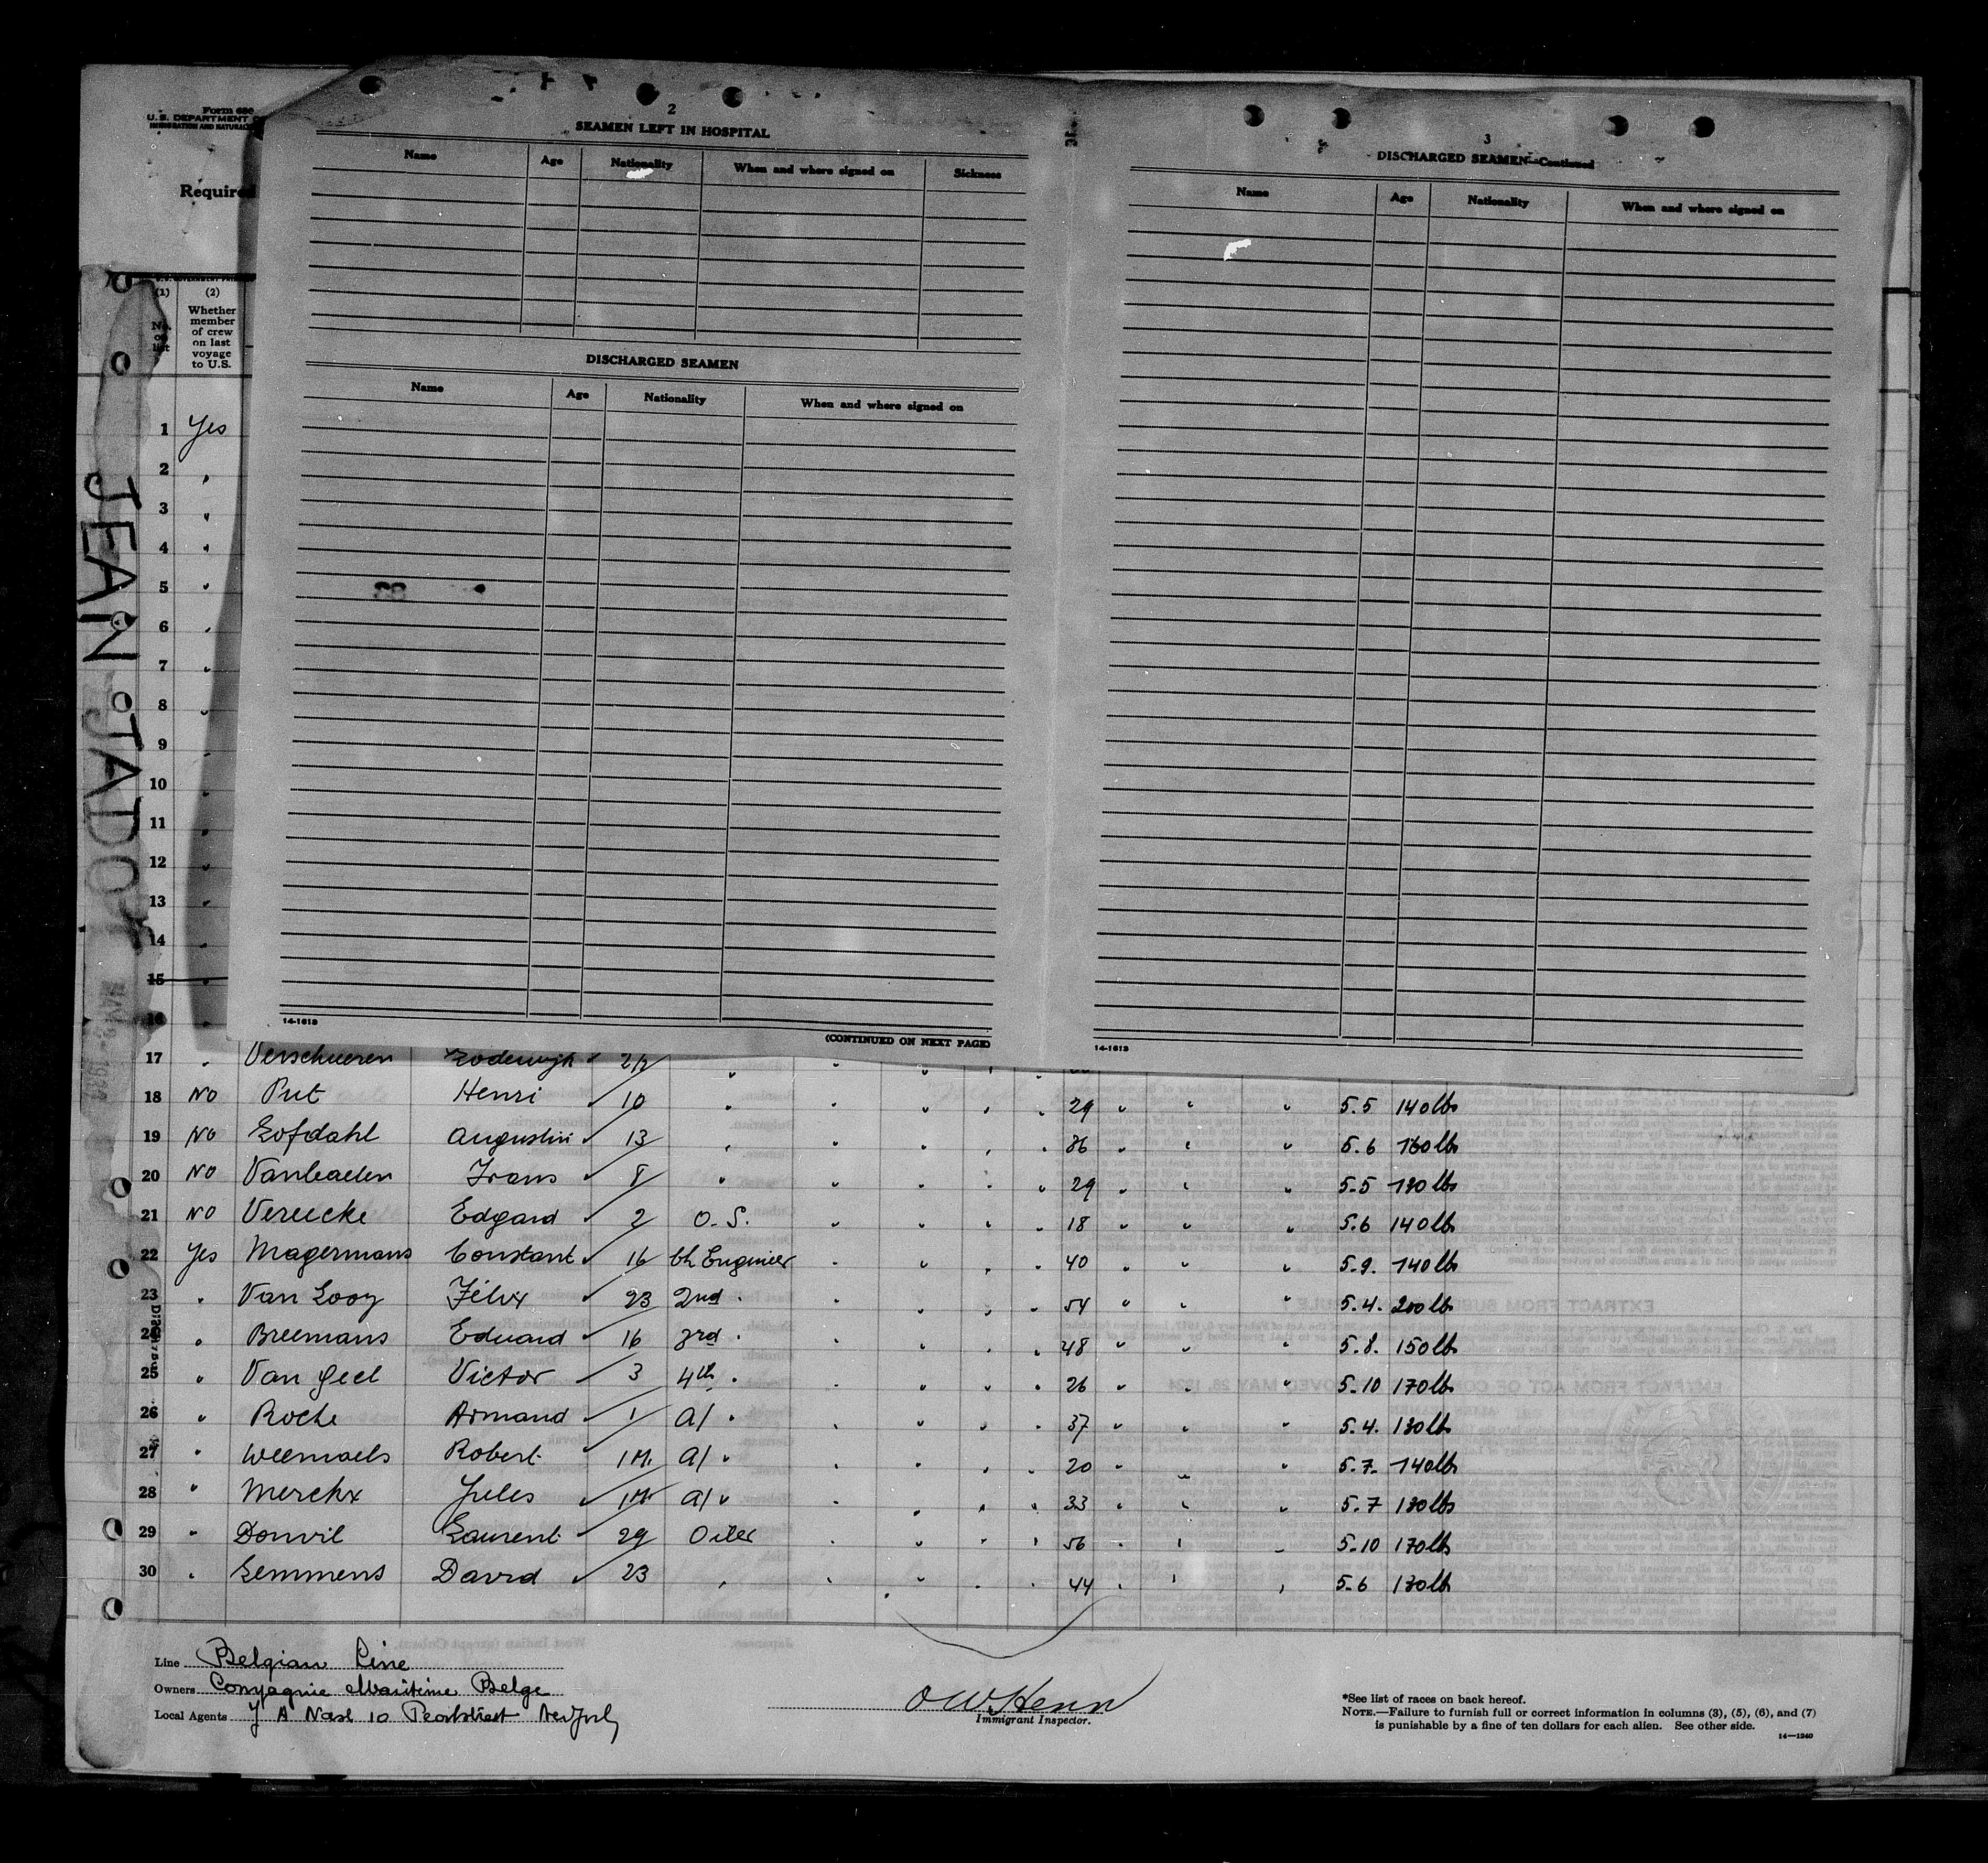 Form 680
U. S. DEPARTMENT
IMMIGRATION AND
Required
2
SEAMEN LEFT IN HOSPITAL
Name Age Nationality When and where signed on Sickness
DISCHARGED SEAMEN
Name Age Nationality When and where signed on
14-1613
(CONTINUED ON NEXT PAGE)
3
DISCHARGED SEAMEN—Continued
Name Age Nationality When and where signed on
14-1613
JEAN JADOT
(1) (2)
No. on list
Whether member of crew on last voyage to U.S.
1 Yes
2 "
3 "
4 "
5 "
6 "
7 "
8 "
9 "
10 "
11 "
12 "
13 "
14 "
15 "
16 "
17 " Verschueren Lodewijk
18 No Put Henri 10 " " " " " 29 " " " 5.5 140 lbs
19 No Lofdahl Augustin 13 " " " " " 36 " " " 5.6 160 lbs
20 No Vanbaelen Frans 8 " " " " " 29 " " " 5.5 130 lbs
21 No Vereecke Edgard 2 O.S. " " " " 18 " " " 5.6 140 lbs
22 Yes Magermans Constant 16 Ch Engineer " " " " 40 " " " 5.9. 140 lbs
23 " Van Looy Félix 23 2nd " " " " " 54 " " " 5.4. 200 lbs
24 " Breemans Eduard 16 3rd " " " " " 48 " " " 5.8. 150 lbs
25 " Van Geel Victor 3 4th " " " " " 26 " " " 5.10 170 lbs
26 " Roche Armand 1 A/ " " " " " 37 " " " 5.4. 130 lbs
27 " Weemaels Robert 1 M. A/ " " " " " 20 " " " 5.7. 140 lbs
28 " Merckx Jules 1 M. A/ " " " " " 33 " " " 5.7 130 lbs
29 " Donvil Laurent 29 Oiler " " " " 56 " " " 5.10 170 lbs
30 " Lemmens David 23 " " " " " 44 " " " 5.6 130 lbs
Line Belgian Line
Owners Compagnie Maritime Belge
Local Agents 10 Pearlstreet
Immigrant Inspector.
*See list of races on back hereof.
NOTE.—Failure to furnish full or correct information in columns (3), (5), (6), and (7)
is punishable by a fine of ten dollars for each alien. See other side.
14—1240